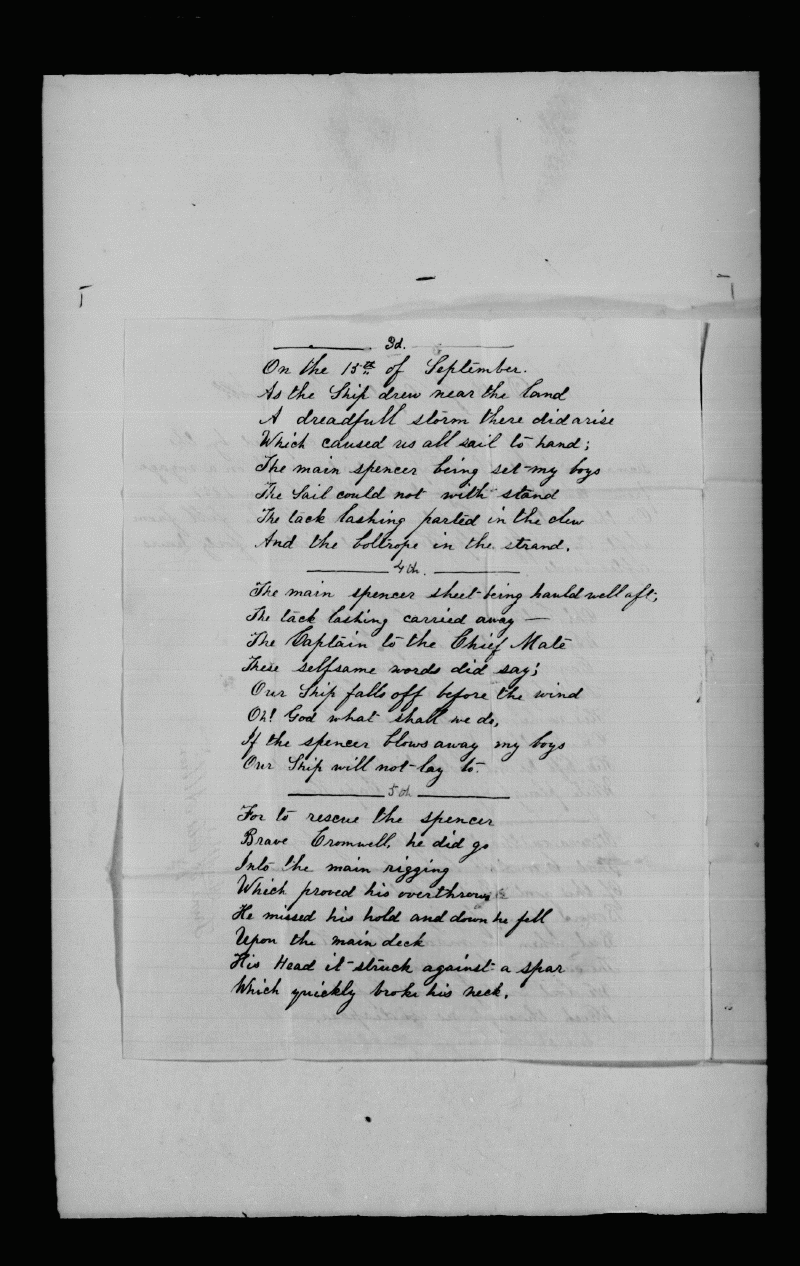 3d.
On the 15th of September.
As the Ship drew near the land
A dreadfull storm there did arise
Which caused us all sail to hand;
The main spencer being set my boys
The Sail could not with stand
The tack lashing parted in the clew
And the boltrope in the strand.
4th.
The main spencer sheet being hauld well aft;
The tack lashing carried away —
The Captain to the Chief Mate
These selfsame words did say;
Our Ship falls off before the wind
Oh! God what shall we do,
If the spencer blows away my boys
Our Ship will not lay to.
5th
For to rescue the spencer
Brave Cromwell, he did go
Into the main rigging
Which proved his overthrow
He missed his hold and down he fell
Upon the main deck
His Head it struck against a spar
Which quickly broke his neck.